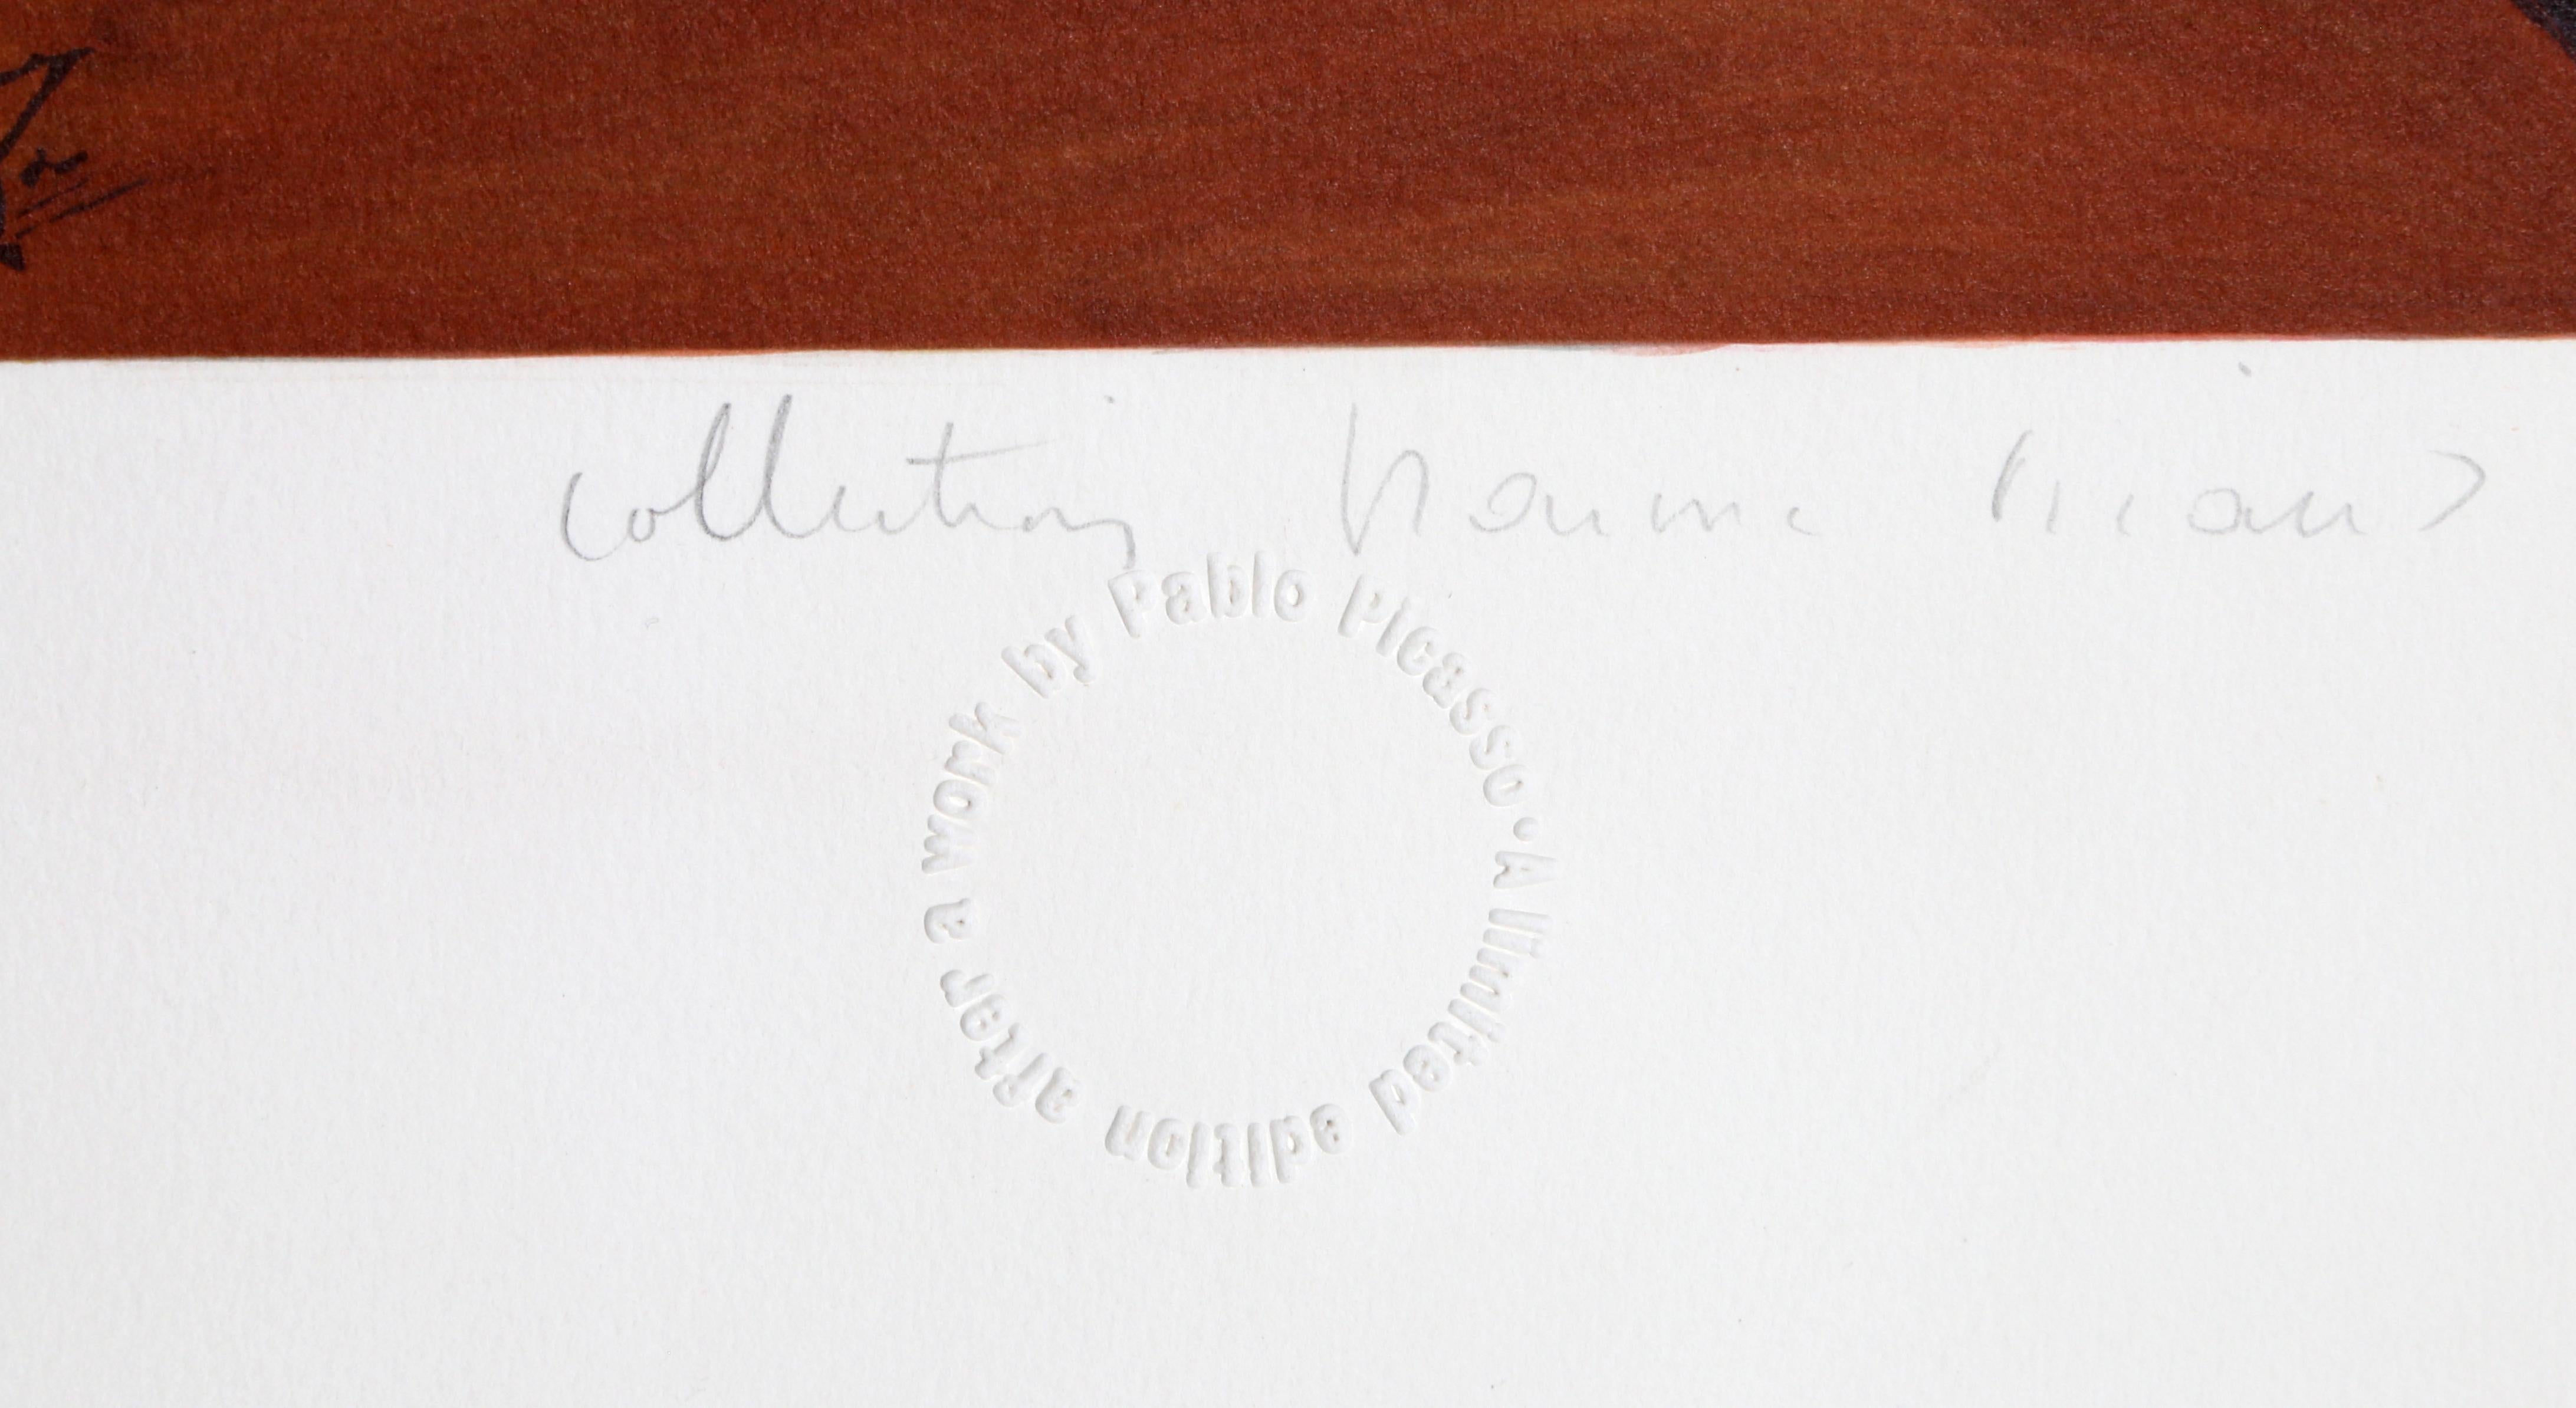 collection Marina Picasso
A limited edition after a work by Pablo Picasso •